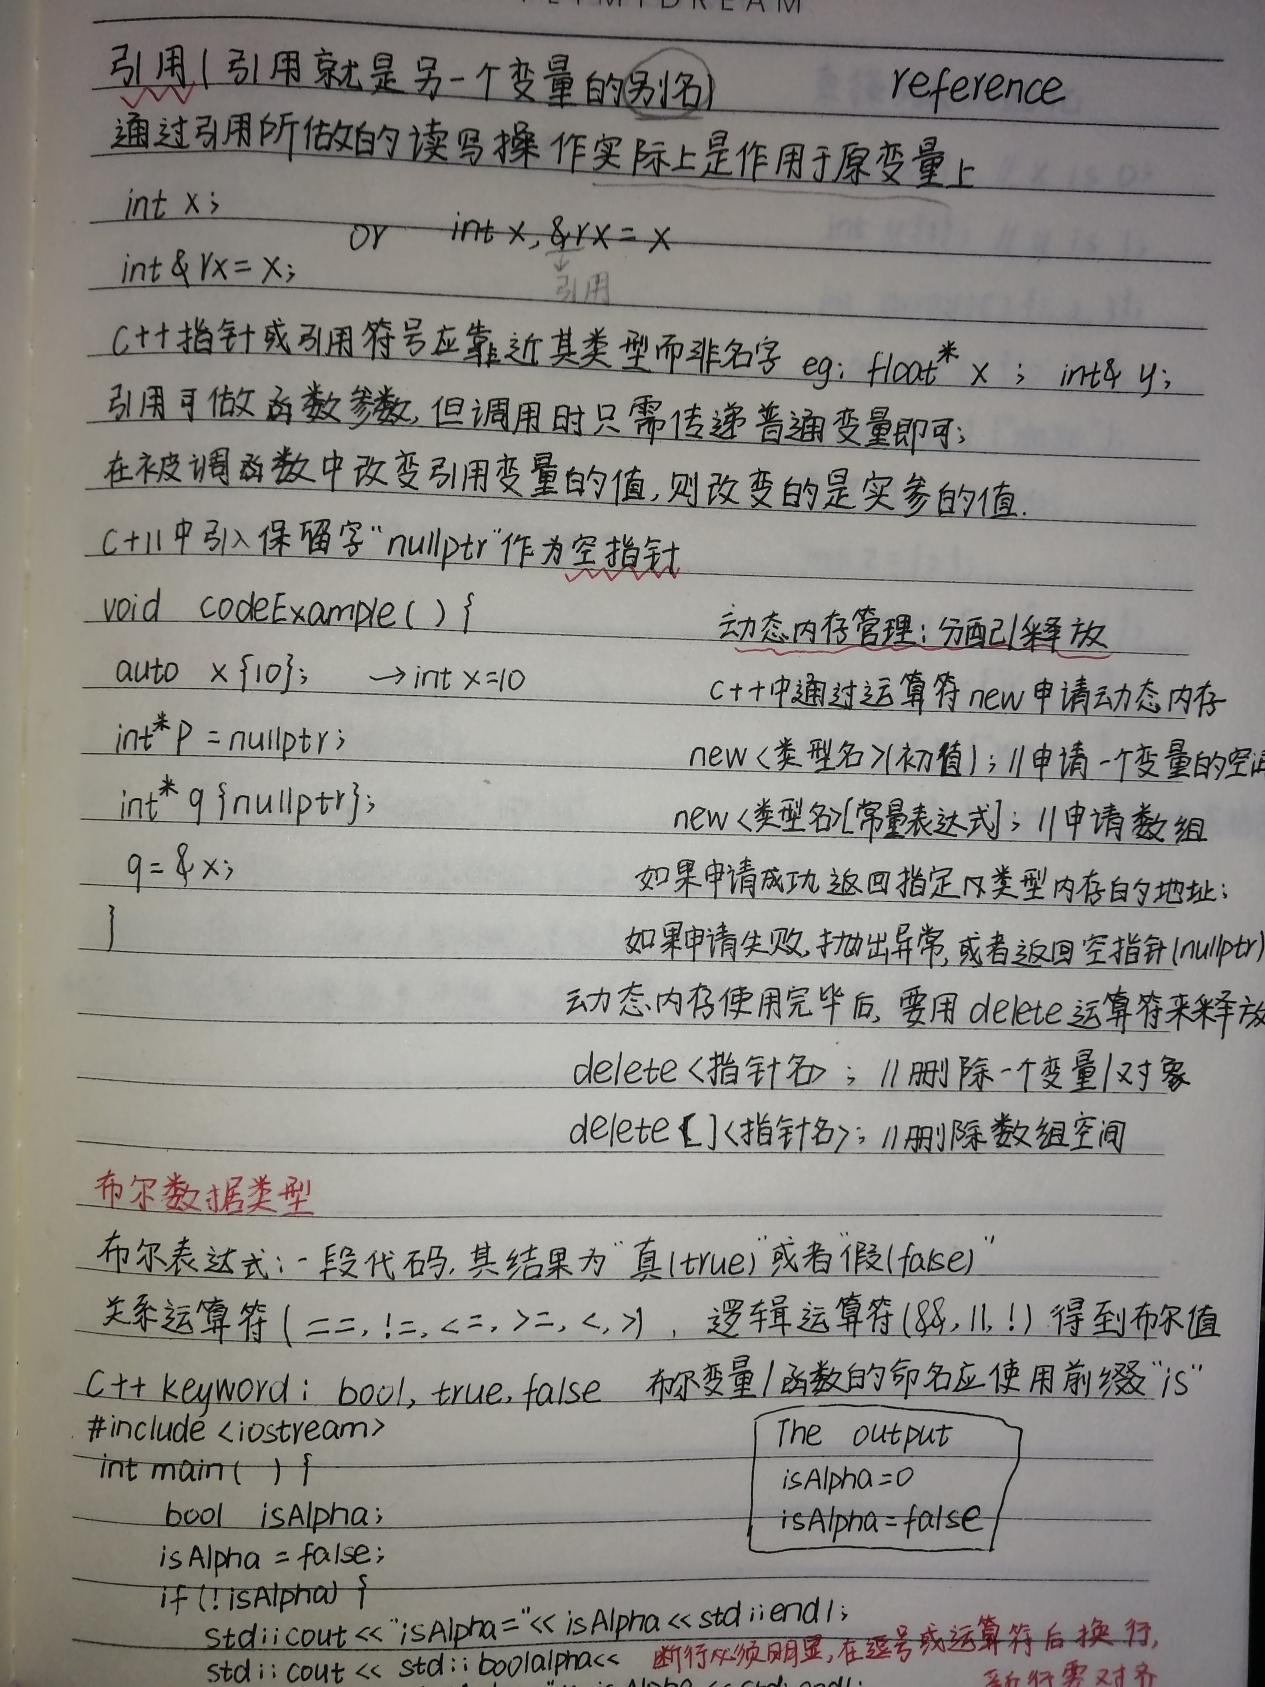 引用(引用就是另一个变量的别名) reference
通过引用所做的读写操作实际上是作用于原变量上
int x;
or int x, &rx = x
int & rx = x;
引用
C++指针或引用符号应靠近其类型而非名字 eg: float* x ; int& y;
引用可做函数参数,但调用时只需传递普通变量即可;
在被调函数中改变引用变量的值,则改变的是实参的值.
C+11中引入保留字"nullptr"作为空指针
void codeExample( ) {
auto x{10}; →int x=10
int* p = nullptr;
int* q {nullptr};
q = & x;
}
动态内存管理:分配/释放
C++中通过运算符new申请动态内存
new <类型名>(初值) ; //申请一个变量的空间
new <类型名>[常量表达式] ; //申请数组
如果申请成功,返回指定类型内存的地址;
如果申请失败,抛出异常,或者返回空指针(nullptr)
动态内存使用完毕后,要用delete运算符来释放
delete <指针名> ; //删除一个变量/对象
delete [ ]<指针名>; //删除数组空间
布尔数据类型
布尔表达式:一段代码,其结果为"真(true)"或者"假(false)"
关系运算符( ==, !=, <=, >=, <, >) , 逻辑运算符(&&, ||, !) 得到布尔值
C++ keyword: bool, true, false 布尔变量/函数的命名应使用前缀"is"
#include <iostream>
int main( ) {
bool isAlpha;
isAlpha = false;
if (!isAlpha) {
std::cout << "isAlpha=" << isAlpha << std::endl;
std::cout << std::boolalpha<<
The output
isAlpha=0
isAlpha=false
断行必须明显,在逗号或运算符后换行,
新行要对齐